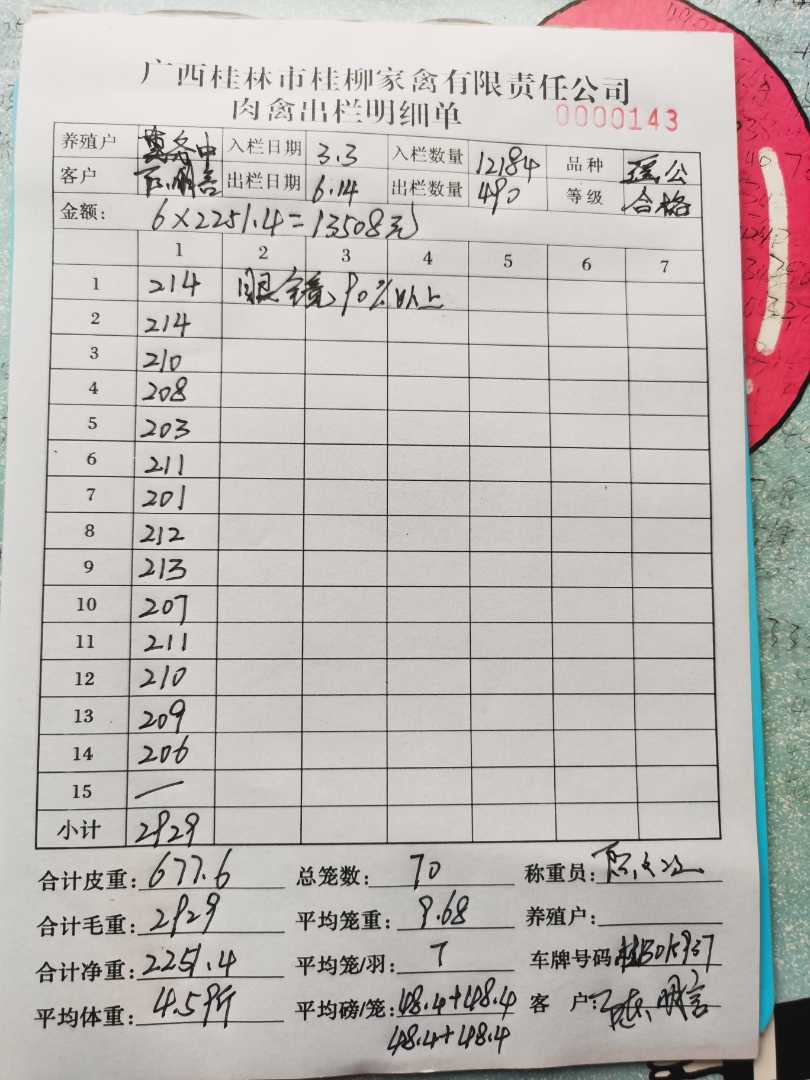 广西桂林市桂柳家禽有限责任公司
肉禽出栏明细单 0000143
养殖户 入栏日期 3.3 入栏数量 12184 品种 瑶公
客户 陈明言 出栏日期 6.14 出栏数量 490 等级 合格
金额: 6×2251.4=13508元
1 2 3 4 5 6 7
1 214 眼镜90%以上
2 214
3 210
4 208
5 203
6 211
7 201
8 212
9 213
10 207
11 211
12 210
13 209
14 206
15 —
小计 2929
合计皮重: 677.6 总笼数: 70 称重员:
合计毛重: 2929 平均笼重: 9.68 养殖户:
合计净重: 2251.4 平均笼/羽: 7 车牌号码:
平均体重: 4.59斤 平均磅/笼: 48.4+48.4 客 户: 陈明言
48.4+48.4